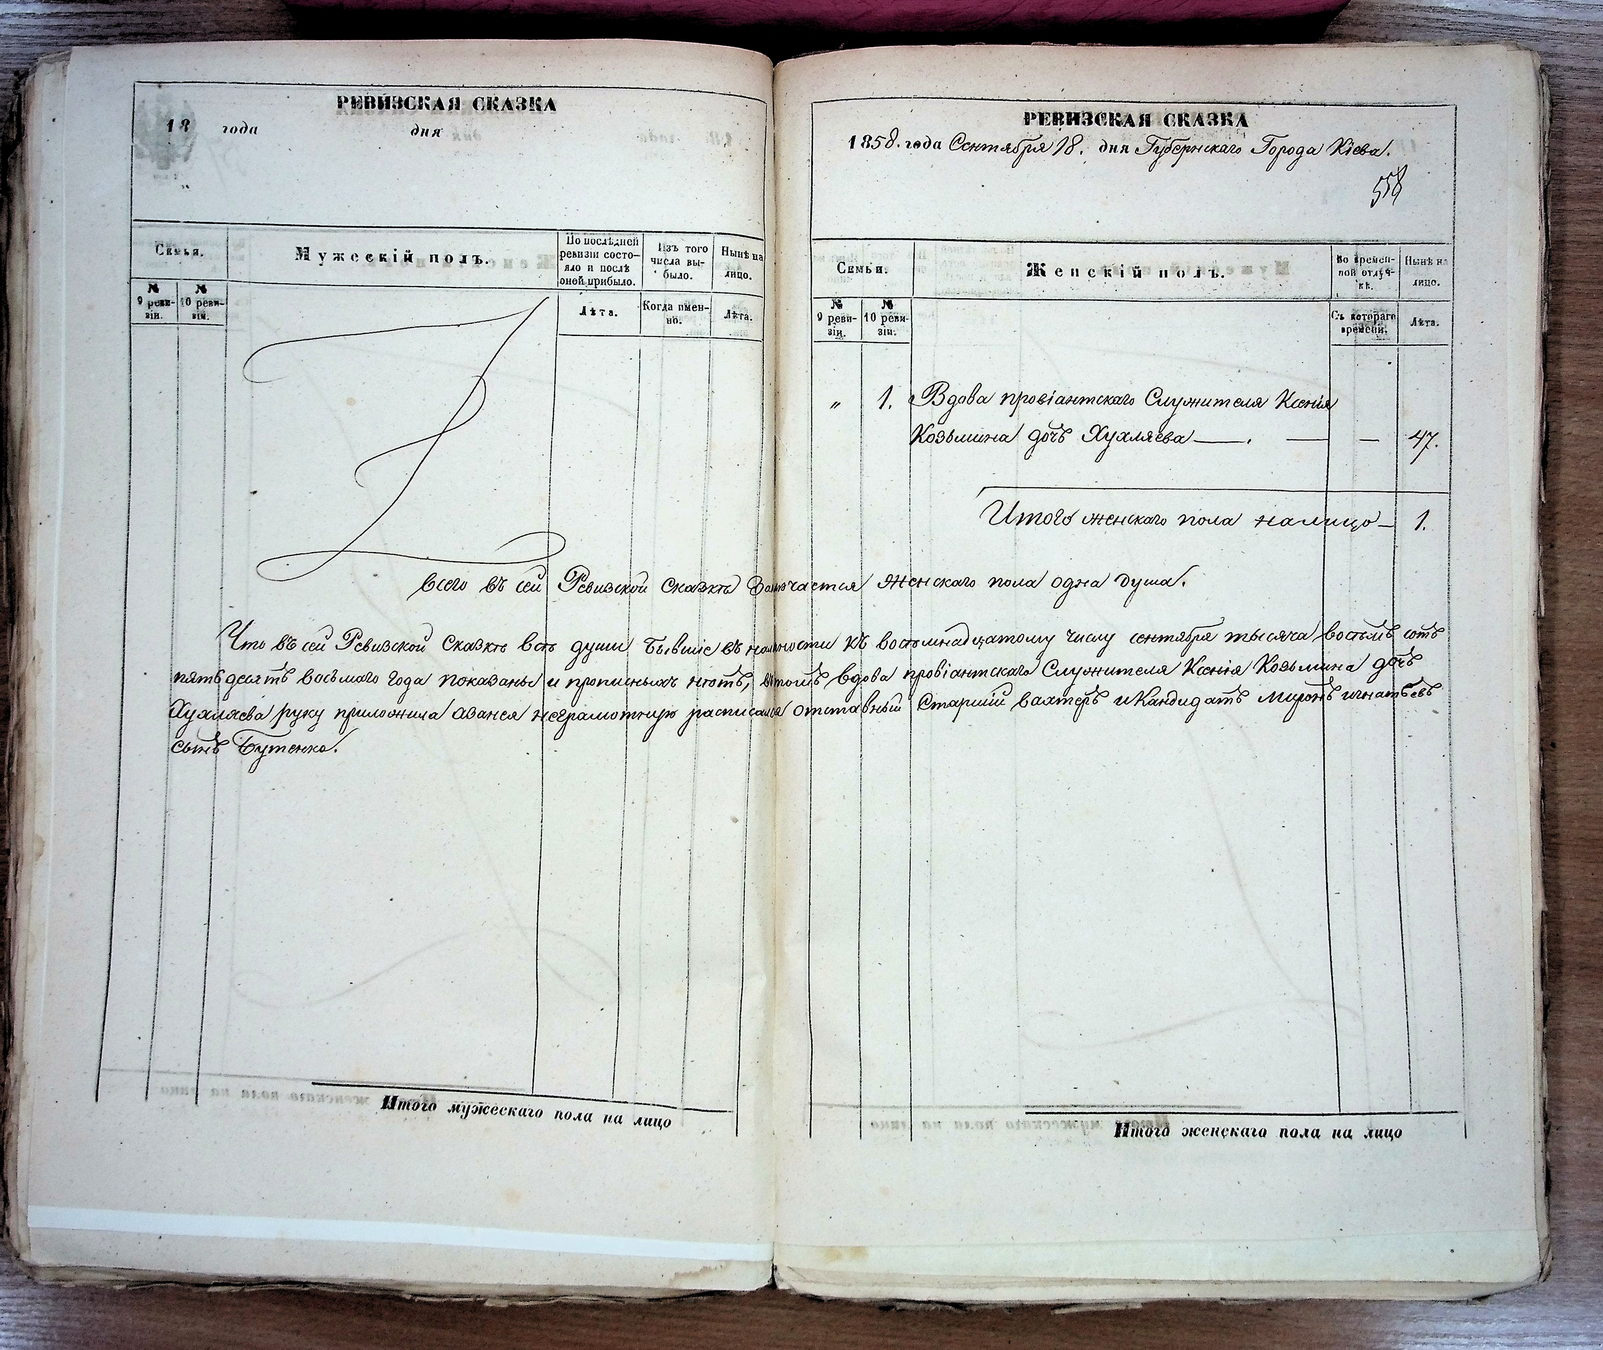 РЕВИЗСКАЯ СКАЗКА
18 года дня
Семья.
Мужескій полъ.
По послѣдней ревизіи состояло и послѣ оной прибыло.
Изъ того числа выбыло.
Нынѣ на лицо.
№ 9 ревизіи.
№ 10 ревизіи.
Лѣта.
Когда именно.
Лѣта.
РЕВИЗСКАЯ СКАЗКА
1858. года Сентября 18. дня Губернскаго Города Кіева.
558
Семьи.
Женскій полъ.
Во временной отлучкѣ.
Нынѣ на лицо.
№ 9 ревизіи.
№ 10 ревизіи.
Съ котораго времени.
Лѣта.
" 1. Вдова провіантскаго Служителя Ксенія
Козьмина дочь Хухляева — . — — 47.
Итого женскаго пола налицо — 1.
Всего въ сей Ревизской Сказкѣ женскаго пола одна душа.
Что въ сей Ревизской Сказкѣ всѣ души бывшіе въ къ восемнадцатому числу сентября тысяча восемь сотъ
пятьдесятъ восьмаго года показаны и прописныхъ нѣтъ, вдова провіантскаго Служителя Ксенія Козьмина дочь
Хухляева руку приложила а занея неграмотную росписался отставный Старшій вахтеръ и Кандидатъ Миронъ Игнатьевъ
сынъ Бутенко.
Итого мужескаго пола на лицо
Итого женскаго пола на лицо